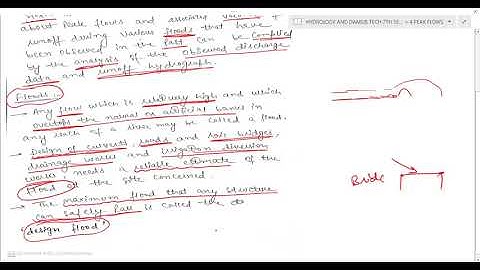 about Peak flows and
runoff during various floods that have
been observed in the Past can be compiled
by the analysis of the observed discharge
data and runoff hydrograph.
Floods :-
→ Any flow which is relatively high and which
overtops the normal or artificial banks in
any reach of a stream may be called a flood.
→ Design of culverts, roads and rail bridges,
drainage works and irrigation diversion
works, needs a reliable estimate of the
flood at the site concerned.
→ The maximum flood that any structure
can safely pass is called the
'design flood'
HYDROLOGY AND DAMS(B TECH-7TH SE... > 4 PEAK FLOWS